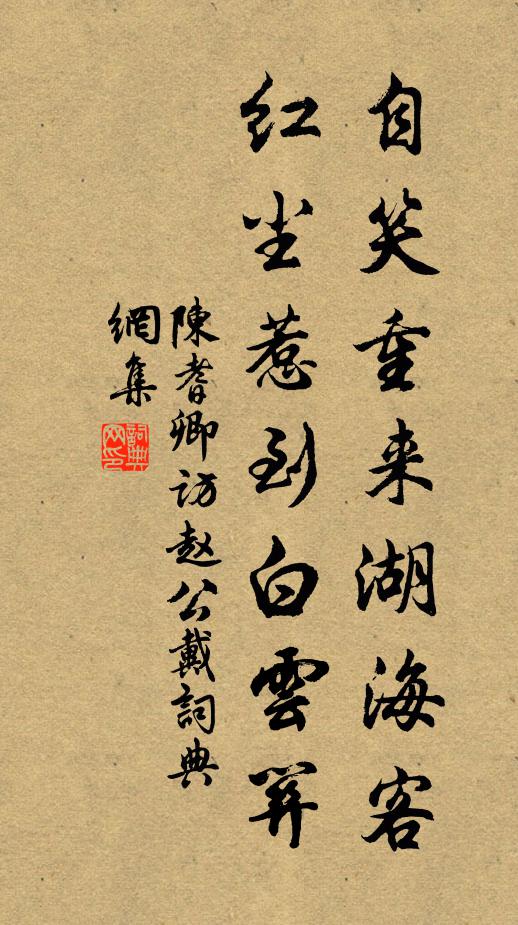 自笑重来湖海客
红尘惹到白雲笄
陳耆卿访赵公戴詞典
網集
詞典
网印